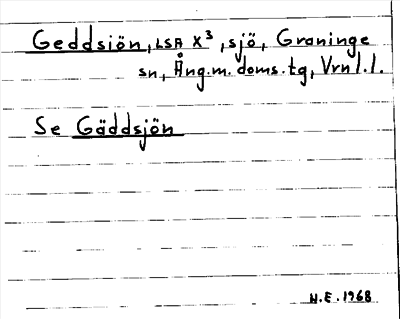 Geddsiön, LSA X³, sjö, Graninge
sn, Ång.m. doms.tg, Vrnl.l.
Se Gäddsjön
H.E. 1968